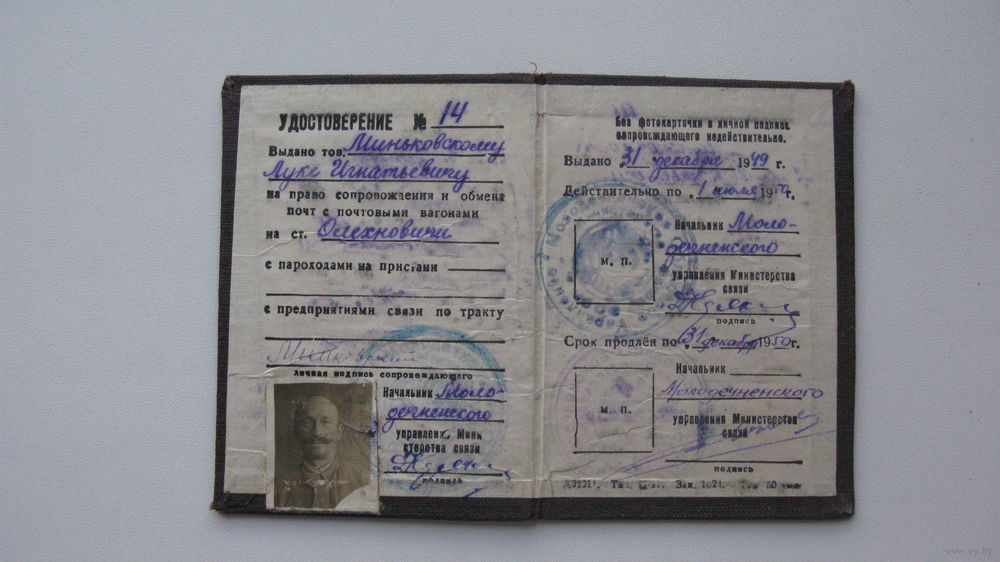 УДОСТОВЕРЕНИЕ № 14
Выдано тов. Миньковскому
Луке Игнатьевичу
на право сопровождения и обмена
почт с почтовыми вагонами
на ст. Олехновичи
с пароходами на пристани
с предприятиями связи по тракту
Миньковский
личная подпись сопровождающего
Начальник Моло-
дечненского
управления Мини
стерства связи
подпись
Без фотокарточки и личной подписи
сопровождающего недействительно.
Выдано „31 декабря 1949 г.
Действительно по „1 июля 1950г.
Начальник Моло-
дечненского
м. п.
управления Министерства
связи
подпись
Срок продлён по „31 декабря 1950г.
Начальник
Молодечненского
м. п.
управления Министерства
связи
подпись
Зак. 1024.
www.ay.by